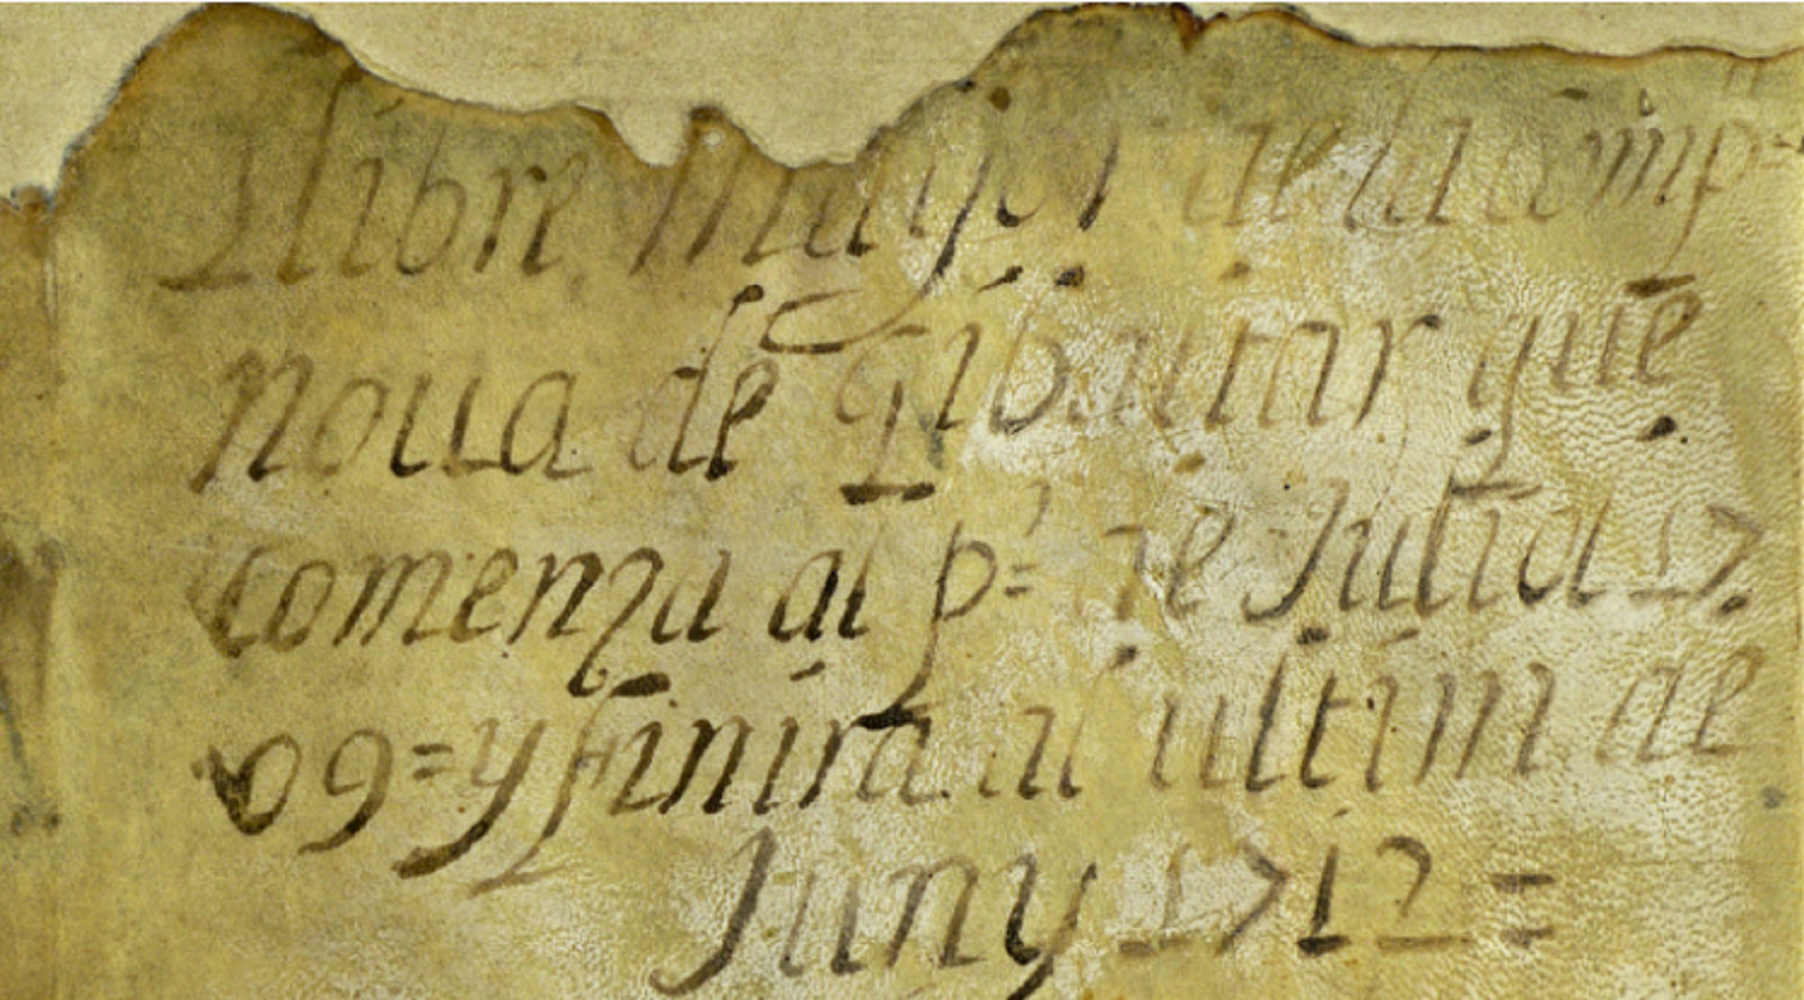 Llibre Major de la Comp.ª
noua de Gibaltar que
Comenza al p.r de Juliol 17
09=y finira al ultim de
Juny 1712=